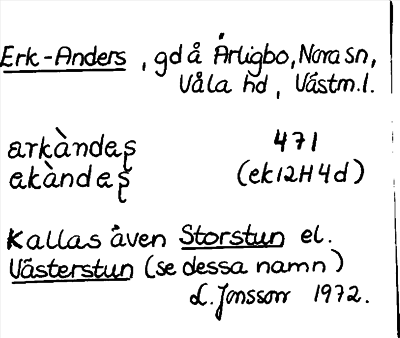 Erk-Anders, gd å Årligbo, Nora sn,
Våla hd, Västm.l.
arkàndaʂ 471
akàndaʂ (ek12H4d)
Kallas även Storstun el.
Västerstun (se dessa namn)
L. Jonsson 1972.